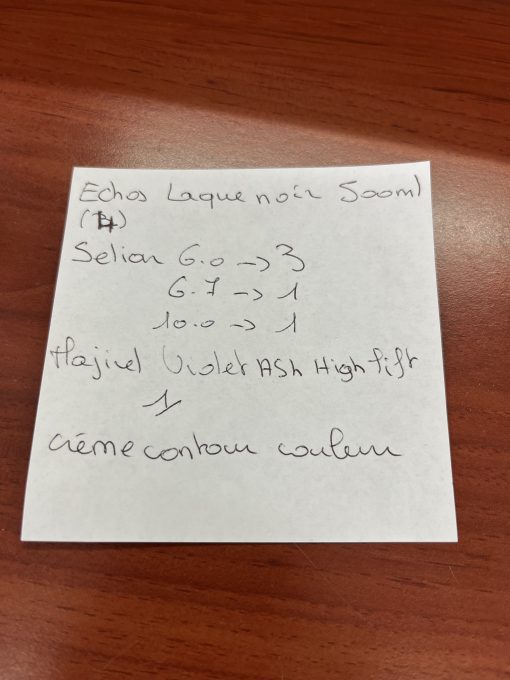 Echos Laque noir 500ml
(4)
Selian 6.0 -> 3
6.7 -> 1
10.0 -> 1
Majirel Violet ASh High lift
1
crème contour couleur